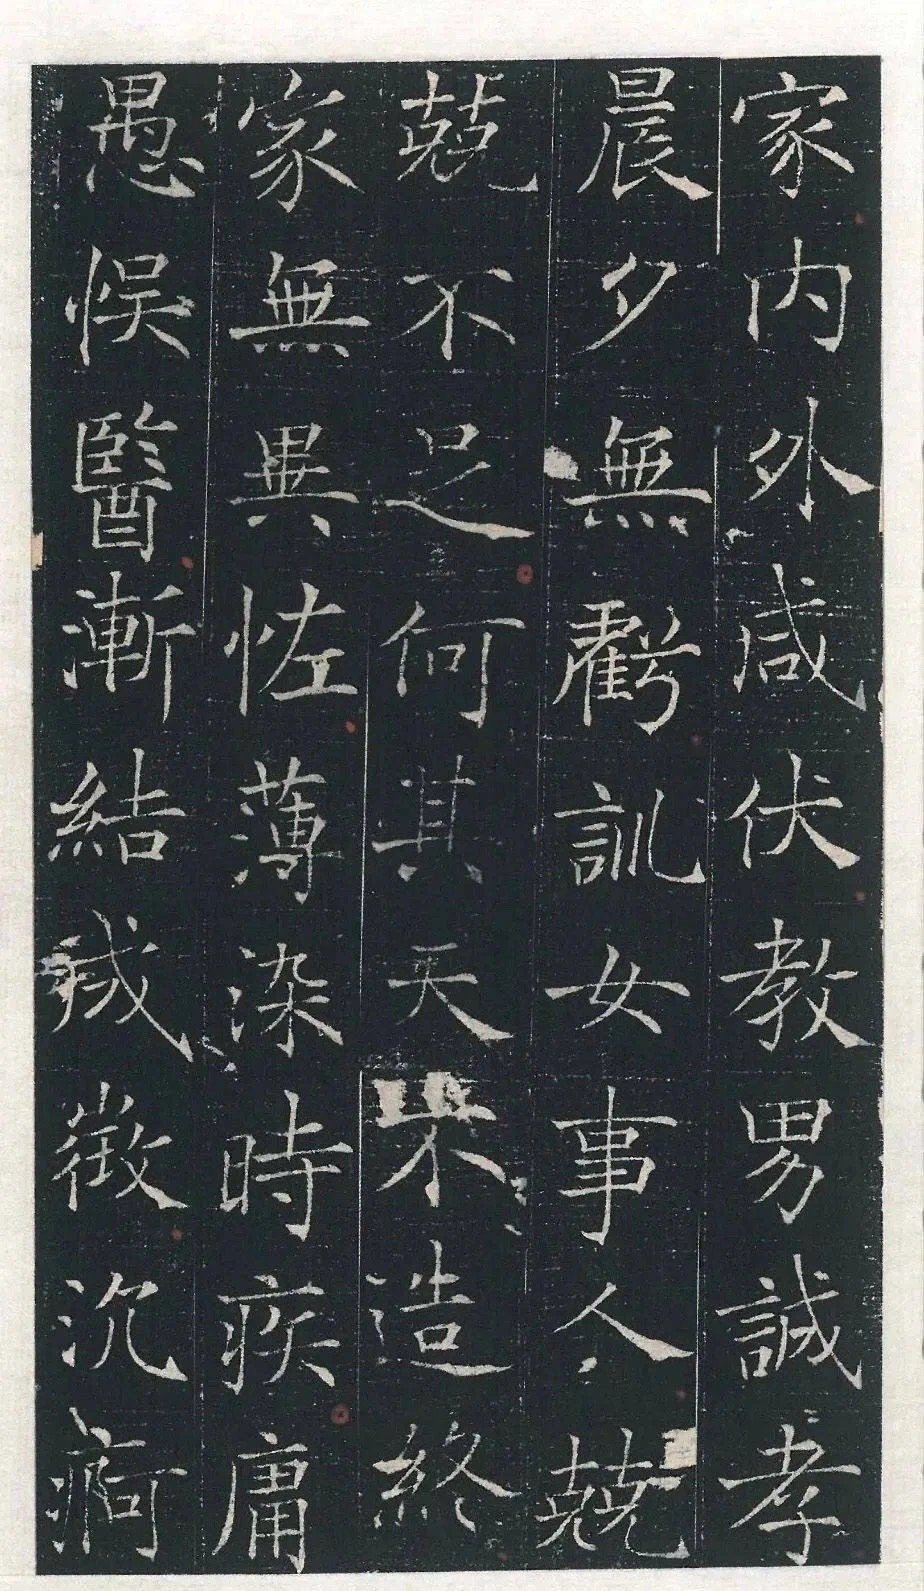 家内外咸伏教男誠孝
晨夕無虧訓女事人兢
兢不足何其天不造終
家無異恠薄染時疾庸
愚悮醫漸結成徵沉痾